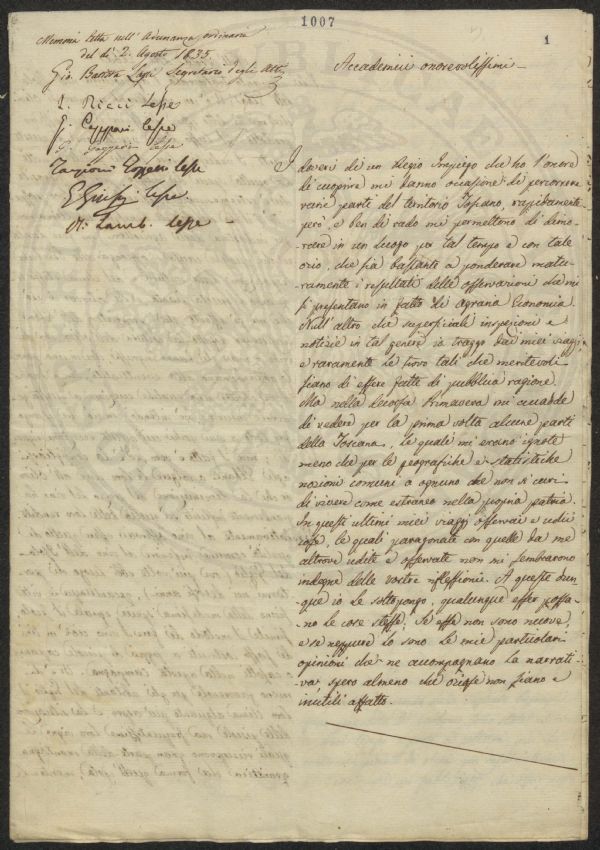 1007
1
Memoria letta nell' Adunanza ordinaria
del dì 2. Agosto 1835.
Gio. Batista Lapi Segretario degli Atti
L. Ricci lesse
G. Capponi lesse
lesse
Targioni Tozzetti lesse
E. Giusti lesse.
lesse
Accademici onorevolissimi
I doveri di un Regio Impiego che ho l'onore
di cuoprire mi danno occasione di percorrere
varie parte del territorio Toscano, rapidamente
però, e ben di rado mi permettono di dimo-
rare in un luogo per tal tempo e con tale
ozio, che sia bastante a ponderare matu-
ramente i resultati delle osservazioni che mi
si presentano in fatto di Agraria Economia.
Null'altro che superficiali inspezioni e
notizie in tal genere io traggo dai miei viaggi,
e raramente le trovo tali che meritevoli
siano di essere fatte di pubblica ragione.
Ma nella decorsa Primavera mi accadde
di vedere per la prima volta alcune parti
della Toscana, le quali mi erano ignote
meno che per le geografiche e statistiche
nozioni comuni a ognuno che non si curi
di vivere come estraneo nella propria patria.
In questi ultimi miei viaggi osservai e udii
cose, le quali paragonate con quelle da me
altrove udite e osservate non mi sembrarono
indegne delle vostre riflessioni. A queste dun-
que io le sottopongo, qualunque esser possa-
no le cose stesse, se esse non sono nuove,
e se neppure lo sono le mie particolari
opinioni che ne accompagnano la narrati-
va spero almeno che oziose non siano e
inutili affatto.